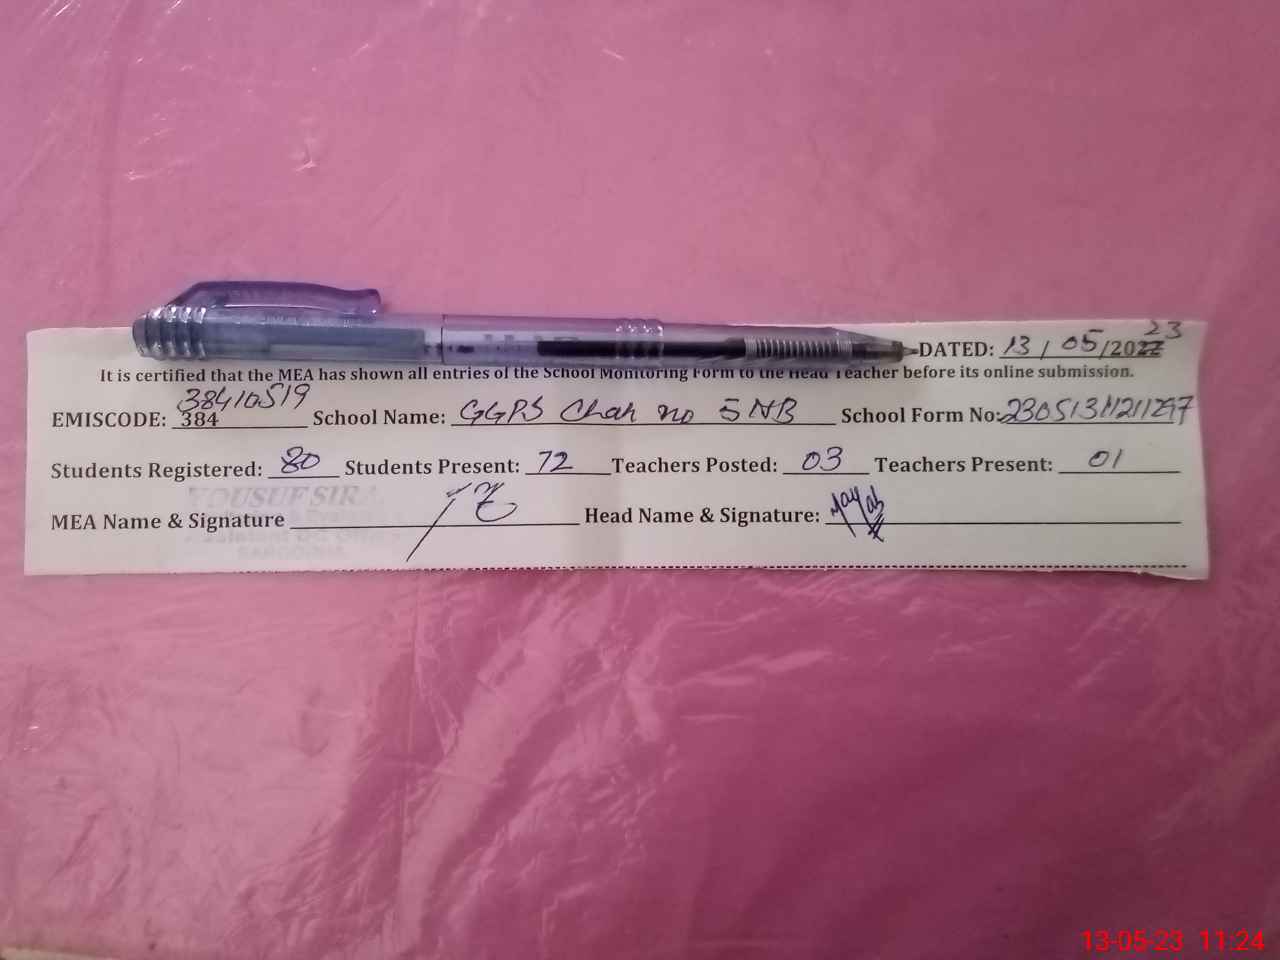 DATED: 13 / 05 /2022 23
It is certified that the MEA has shown all entries of the School Monitoring Form to the Head Teacher before its online submission.
EMISCODE: 384 38410519 School Name: GGPS Chak no 5 NB School Form No:
Students Registered: 80 Students Present: 72 Teachers Posted: 03 Teachers Present: 01
YOUSUF SIRA
MEA Name & Signature Head Name & Signature:
13-05-23 11:24